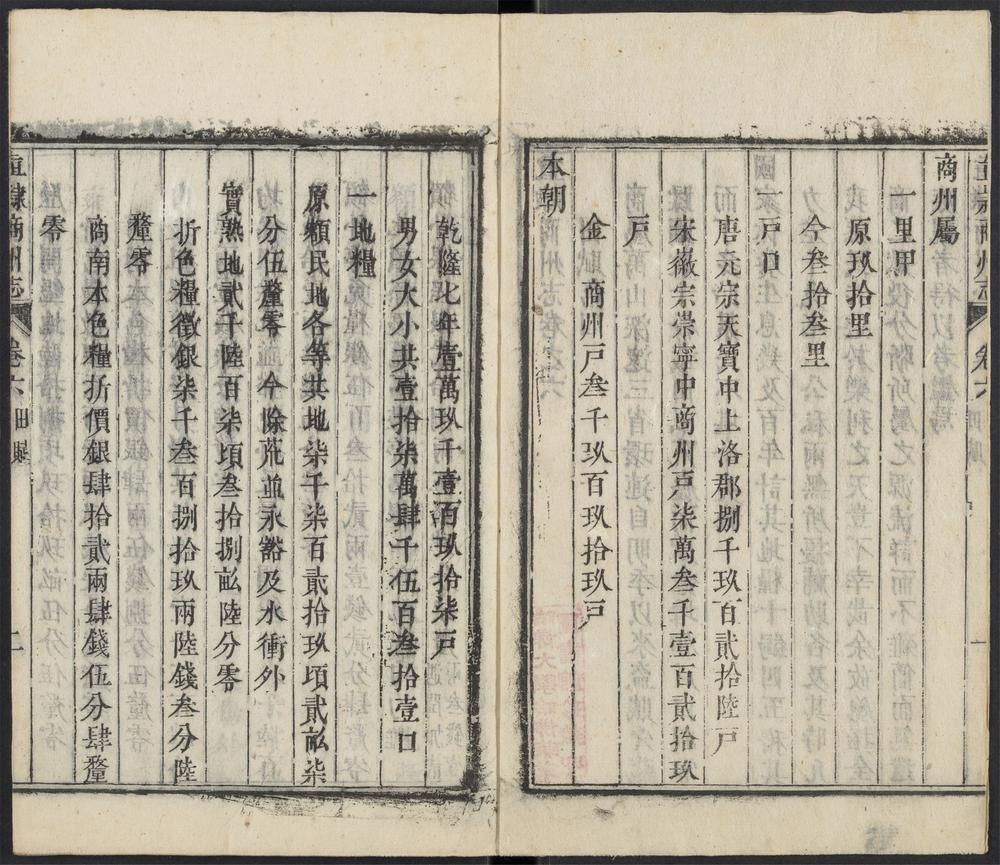 商州屬
一里甲
原玖拾里
今叁拾叁里
一戶口
唐元宗天寶中上洛郡捌千玖百貳拾陸戶
宋徽宗崇寧中商州戶柒萬叁千壹百貳拾玖
戶
金商州戶叁千玖百玖拾玖戶
本朝
乾隆七年壹萬玖千壹百玖拾柒戶
男女大小共壹拾柒萬肆千伍百叁拾壹口
一地糧
原額民地各等共地柒千柒百貳拾玖頃貳畝柒
分伍釐零今除荒並永豁及水衝外
實熟地貳千陸百柒頃叁拾捌畝陸分零
折色糧徵銀柒千叁百捌拾玖兩陸錢叁分陸
釐零
商南本色糧折價銀肆拾貳兩肆錢伍分肆釐
零
直隸商州志 卷六 田賦 二